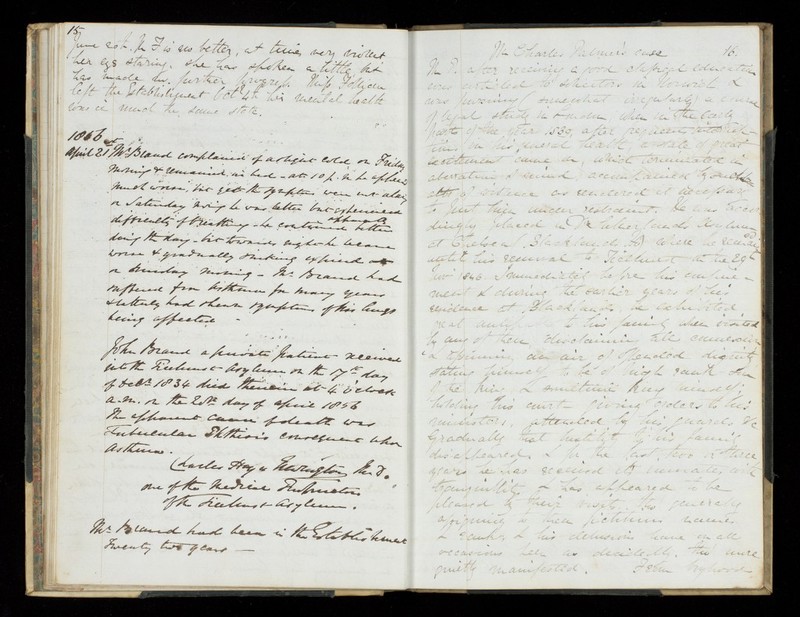 15
June 20th. Mr F is no better, at times very violent
her eyes staring. she has spoken a little, but
has made no further progress. Miss Folycon
left the Establishment Octr 4th his mental health
was in much the same state.
1856
April 21st Mr Brand complained of a slight cold on Friday
Morning & remained in bed - at 10 p.m he appeared
much worse but yet the symptoms were not alarming
on Saturday mording he was better but experienced
difficulty of breathing - he continued better
during the day - but towards night he became
worse & gradually sinking expired
on Sunday morning - Mr Brand had
suffered from Asthma for many years
& latterly had shewn symptoms of his lungs
being affected
John Brand a private Patient received
into the Ticehurst Asylum on the 17th day
of Decr. 1834 died therein at 4 o'clock
a.m. on the 20th day of April 1856
The apparent cause of death was
Tubercular Phthisis consequent upon
Asthma.
Charles Hayes Newington M.D.
one of the Medical Proprietors
of the Ticehurst Asylum.
Mr Brand had been in the Establishment
Twenty two years
Mr Charles Palmer's case 16.
Mr P. after receiving a good classical education
was articled to solicitors in Norwich &
was pursuing somewhat irregularly a course
of legal study in London when in the early
part of the year 1830, after
in his general health, a state of great
excitement came on, which terminated in
aberration of mind accompanied by sudden
acts of violence as rendered it necessary
to put him under restraint. He was accor
dingly placed in Dr Sutherland's Asylum
at Chelsea, Blacklands, where he remained
until his removal to Ticehurst on the 29th
Novr 1846. Immediately before his confine-
ment & during the earlier years of his
residence at Blacklands, he exhibited
great to his family when visited
by any of them
an air of dignity
stating himself to be of high rank - son
of the King & sometimes King himself:
holding his court - giving orders to his
ministers attended by his guards &c
Gradually that hostility to his family
disappeared, & for the last two or three
years he has received its members with
tranquillity & has appeared to be
pleased by their visits, tho' generally
assigning to them fictitious names
& ranks & his delusions have on all
occasions been as decided, tho' more
quietly manifested. John